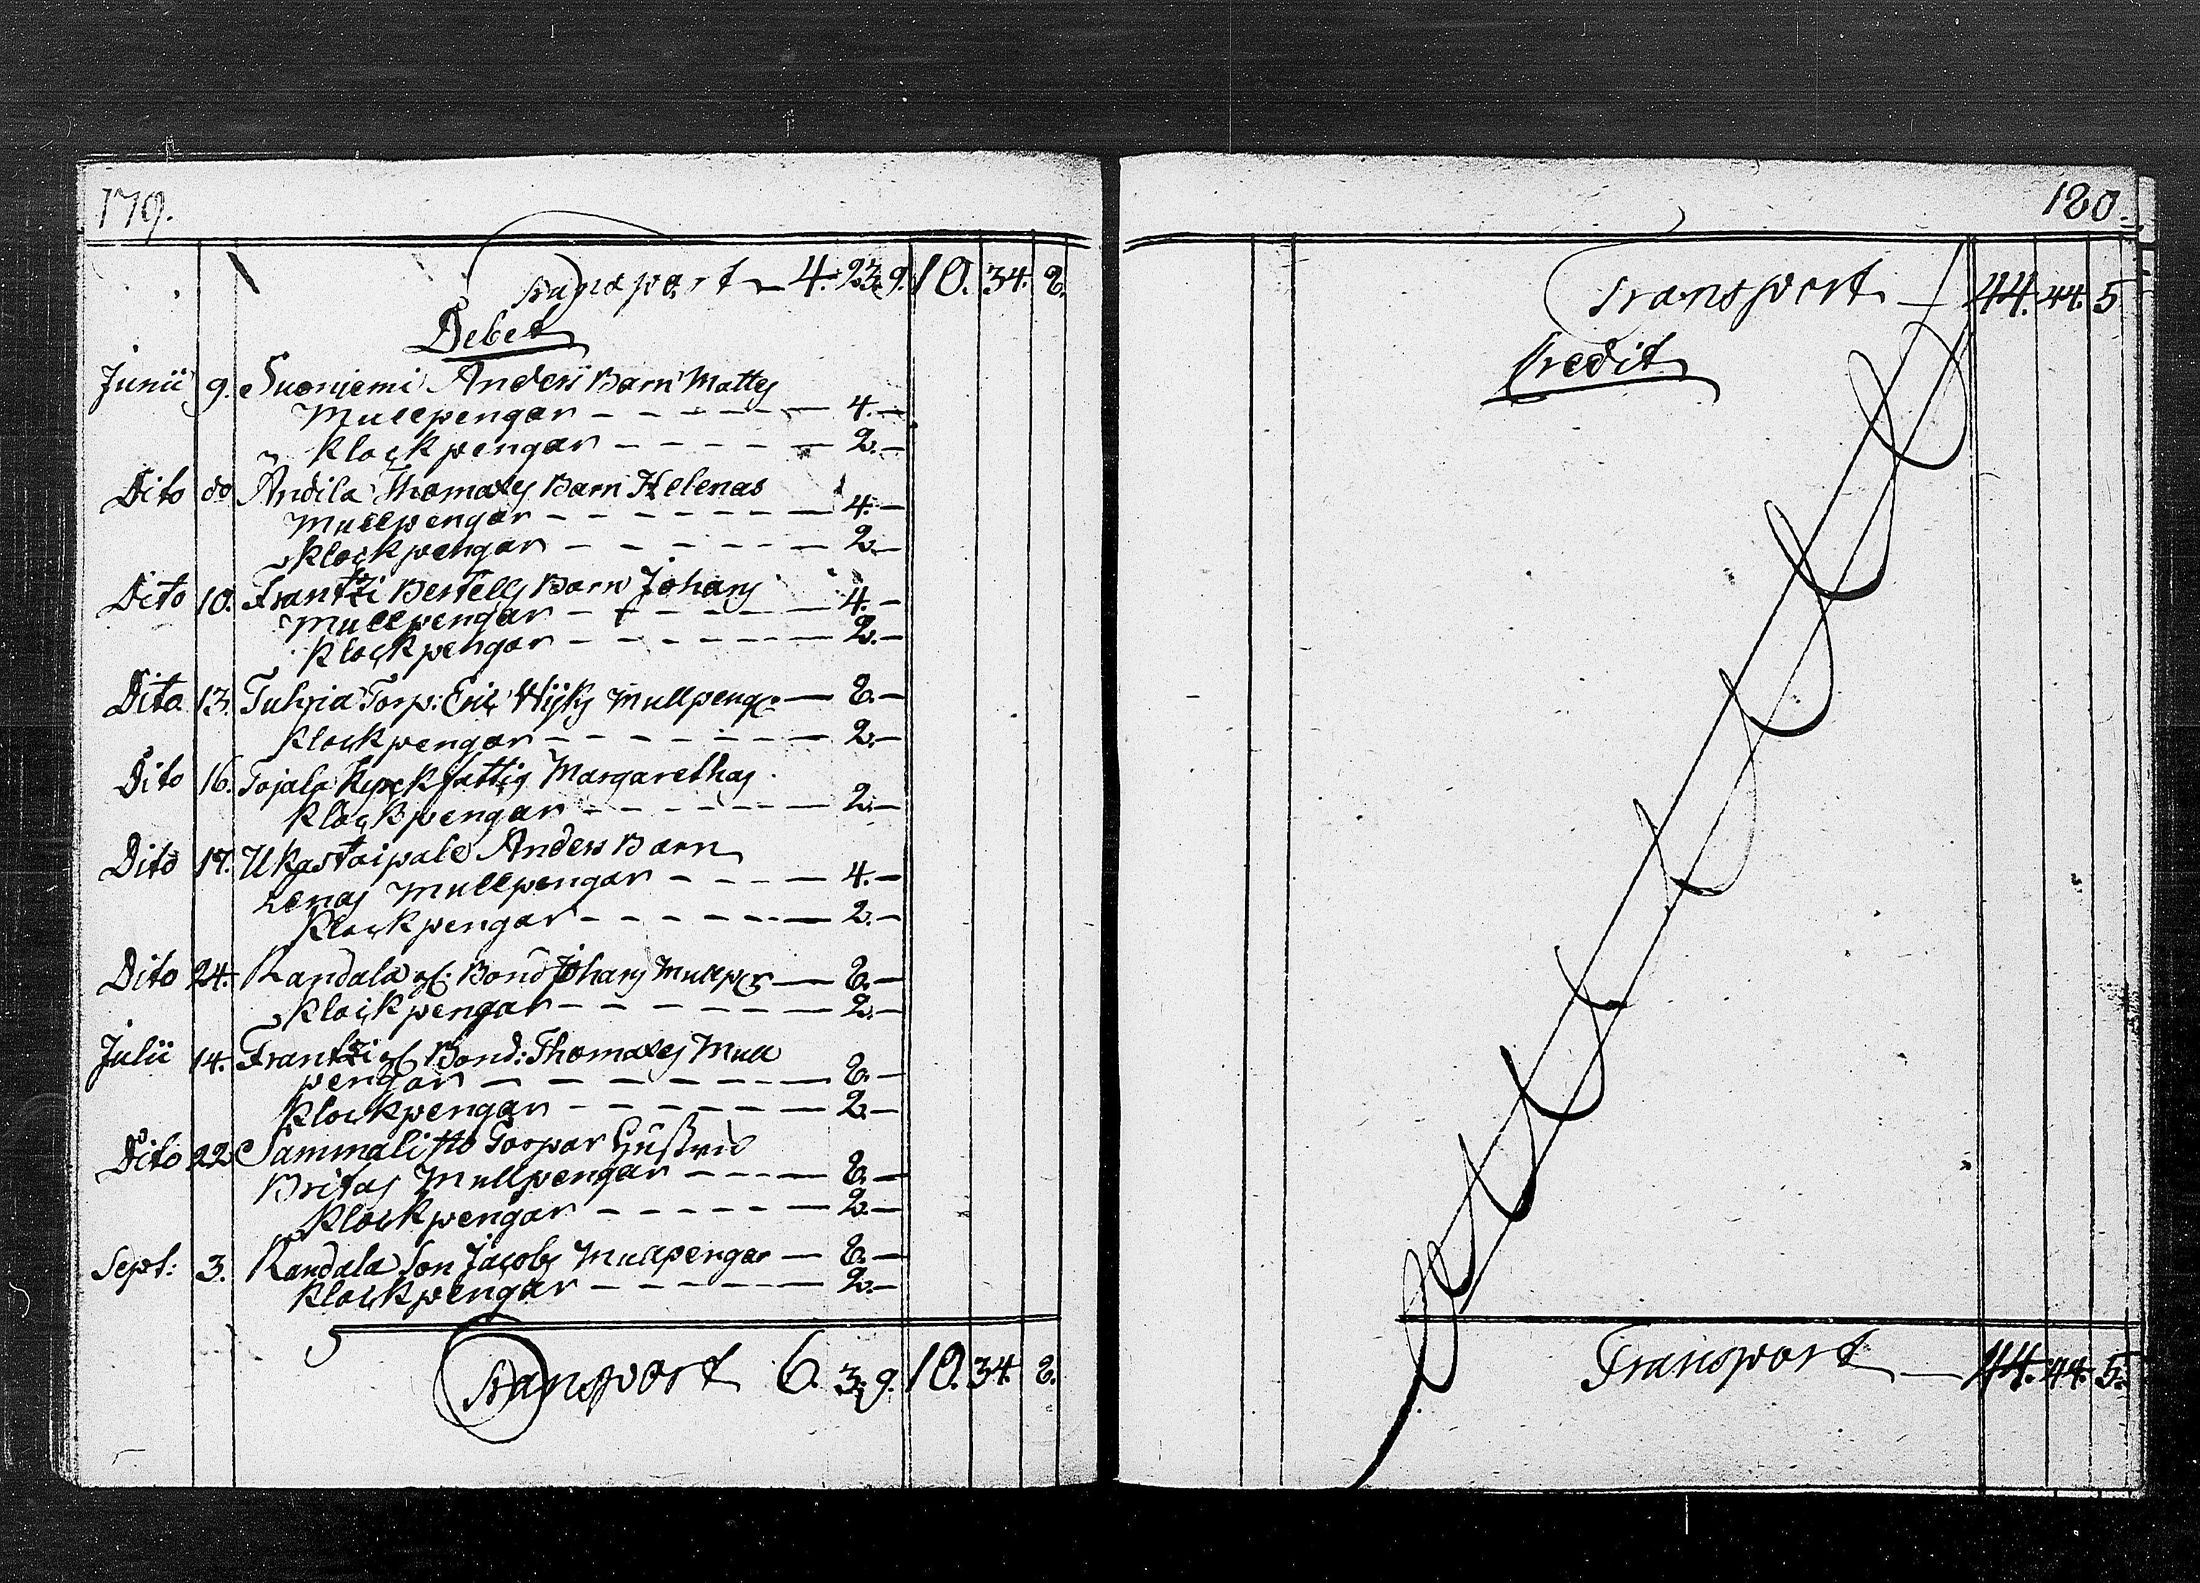 179.
Transport 4. 23. 9. 10. 34. 8.
Debet
Junii 9. Suoniemi Anders Barn Mattes
Mullpengar - - - - - 4. -
Klockpengar - - - - - 2. -
Dito do Andila Thomases Barn Helenas
Mullpengar - - - - - 4. -
Klockpengar - - - - - 2. -
Dito 10. Frantzi Bertells Barn Johans
Mullpengar - - - - - 4. -
Klockpengar - - - - - 2. -
Dito 13. Torp: Eric Mullpeng: - 8. -
Klockpengar - - - - - 2. -
Dito 16. Tojala fattig Margarethas
Klockpengar - - - - - 2. -
Dito 17. Ukastaipale Anders Barn
Lenas Mullpengar - - - - 4. -
Klockpengar - - - - - 2. -
Dito 24. Randala Bond Johans - 8. -
Klockpengar - - - - - 2. -
Julii 14. Frantzi Bond: Thomases Mull
pengar - - - - - 8. -
Klockpengar - - - - - 2. -
Dito 22 Sammalisto Torpar Hustru
Britas Mullpengar - - - - 8. -
Klockpengar - - - - - 2. -
Sept: 3. Randala Son Jacobs Mullpengar - 8. -
Klockpengar - - - - - 2. -
Transport 6. 3. 9. 10. 34. 8.
180.
Transport - 44. 44. 5
Credit
Transport - 44. 44. 5.